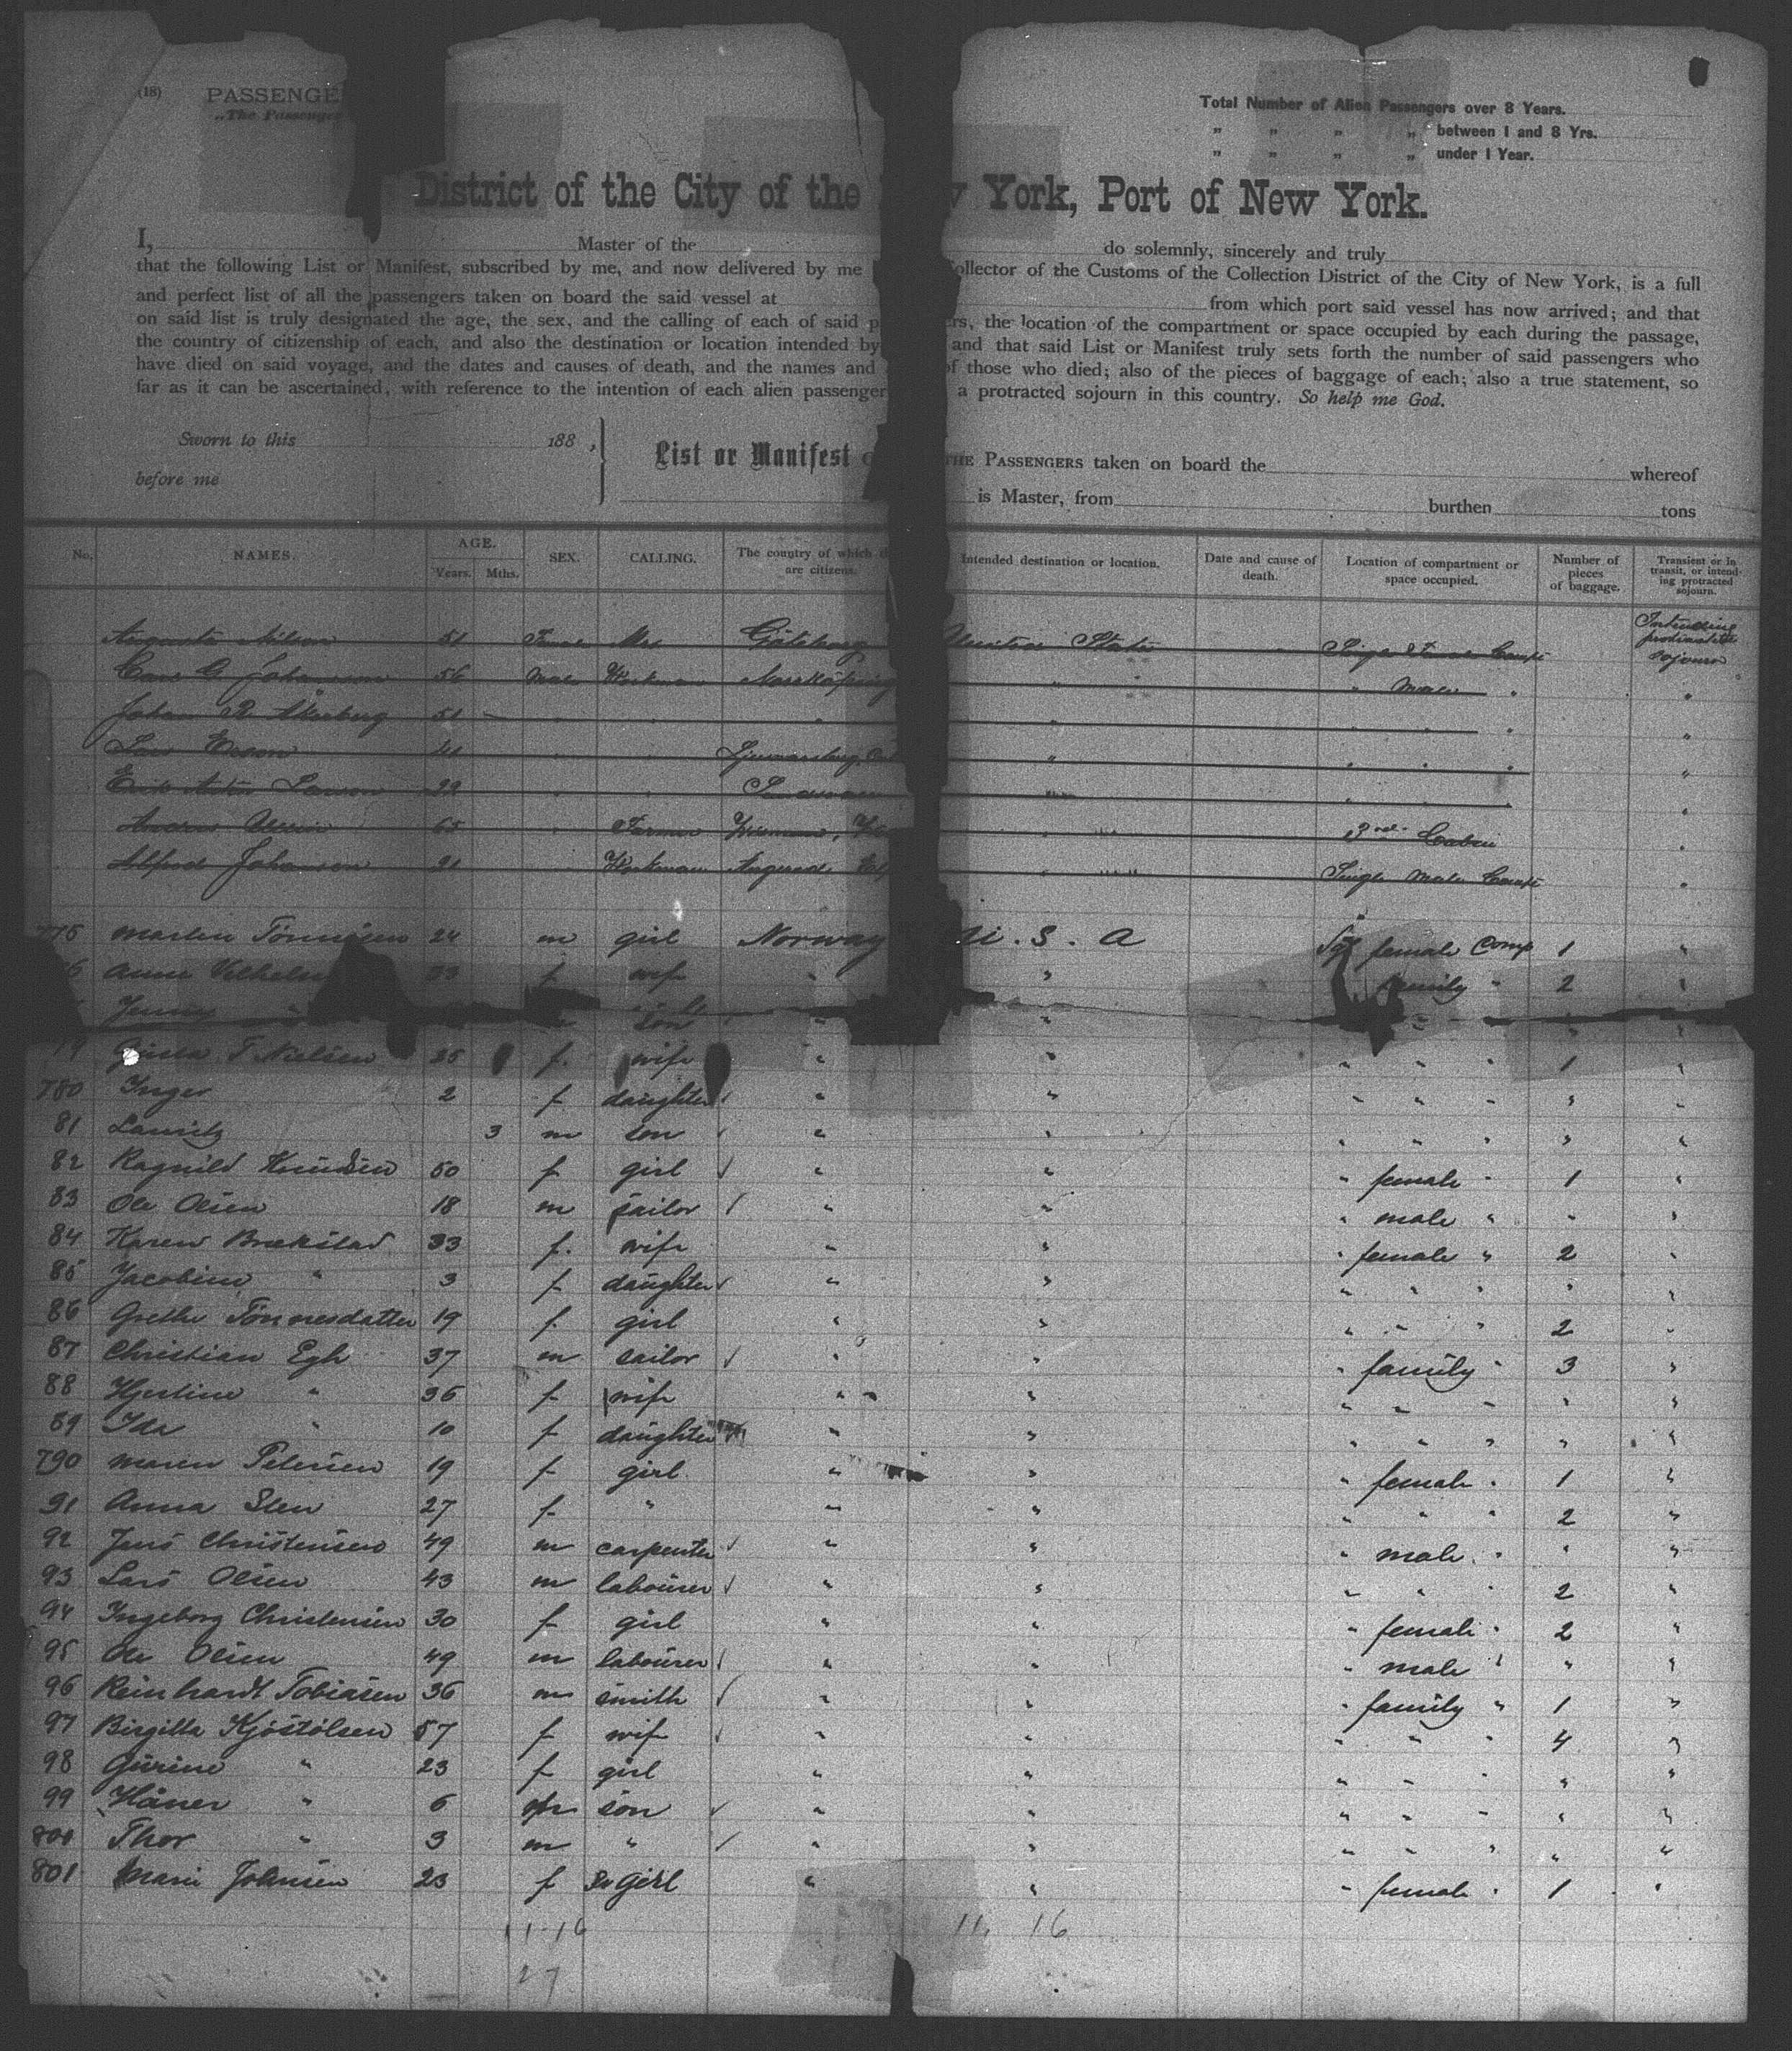 (18) PASSENGE
„The Passenger
Total Number of Alien Passengers over 8 Years.
„ „ „ „ between 1 and 8 Yrs.
„ „ „ „ under 1 Year.
District of the City of the York, Port of New York.
I, Master of the do solemnly, sincerely and truly
that the following List or Manifest, subscribed by me, and now delivered by me ollector of the Customs of the Collection District of the City of New York, is a full
and perfect list of all the passengers taken on board the said vessel at from which port said vessel has now arrived; and that
on said list is truly designated the age, the sex, and the calling of each of said p ers, the location of the compartment or space occupied by each during the passage,
the country of citizenship of each, and also the destination or location intended by and that said List or Manifest truly sets forth the number of said passengers who
have died on said voyage, and the dates and causes of death, and the names and of those who died; also of the pieces of baggage of each; also a true statement, so
far as it can be ascertained, with reference to the intention of each alien passenger a protracted sojourn in this country. So help me God.
Sworn to this 188 ,
before me
List or Manifest THE PASSENGERS taken on board the whereof
is Master, from burthen tons
No. NAMES. AGE. Years. Mths. SEX. CALLING. The country of which th are citizens. Intended destination or location. Date and cause of death. Location of compartment or space occupied. Number of pieces of baggage. Transient or in transit, or intending protracted sojourn.
Augusta Nilson 51 Mrs Göteborg United States Single Female Compt Intending protracted sojourn
Carl G Johansson 56 Male Workman Norrköping " " Male " "
Johan R Åkerberg 51 " " " " " " "
Lars Ersson 41 " " " " " "
Erik Larsson 29 " " " " "
65 " Farmer " 2nd Cabin "
Alfred Johansson 21 Workman " Single Male Compt "
775 24 m girl Norway U. S. A Sgl female Comp 1 "
Anne Vilhelm 33 f wife " " family " 2 "
Jenny " son " "
T Nielsen 35 f. wife " " " " " 1 "
780 Inger 2 f daughter " " " " " " "
81 Lauritz 3 m son " " " " " " "
82 Ragnild Knudsen 50 f girl " " " female " 1 "
83 Ole Olsen 18 m sailor " " " male " " "
84 Karen Brekstad 33 f. wife " " " female " 2 "
85 Jacobine " 3 f daughter " " " " " " "
86 Grethe Tönnesdatter 19 f. girl " " " " " 2 "
87 Christian Egh 37 m sailor " " " family " 3 "
88 Hjertine " 36 f wife " " " " " " "
89 Ida " 10 f daughter " " " " " " "
790 Maren Petersen 19 f girl " " " female " 1 "
91 Anna Sten 27 f " " " " " " 2 "
92 Jens Christensen 49 m carpenter " " " male " " "
93 Lars Olsen 43 m labourer " " " " " 2 "
94 Ingeborg Christensen 30 f girl " " " female " 2 "
95 Ole Olsen 49 m labourer " " " male " " "
96 Reinhardt Tobiasen 36 m smith " " " family " 1 "
97 Birgitta Kjöstölsen 57 f wife " " " " " 4 "
98 Gurine " 23 f girl " " " " " " "
99 " 6 m son " " " " " " "
800 Thor " 3 m " " " " " " " "
801 Marie Johnsen 23 f girl " " " female " 1 "
11-16 11, 16
27